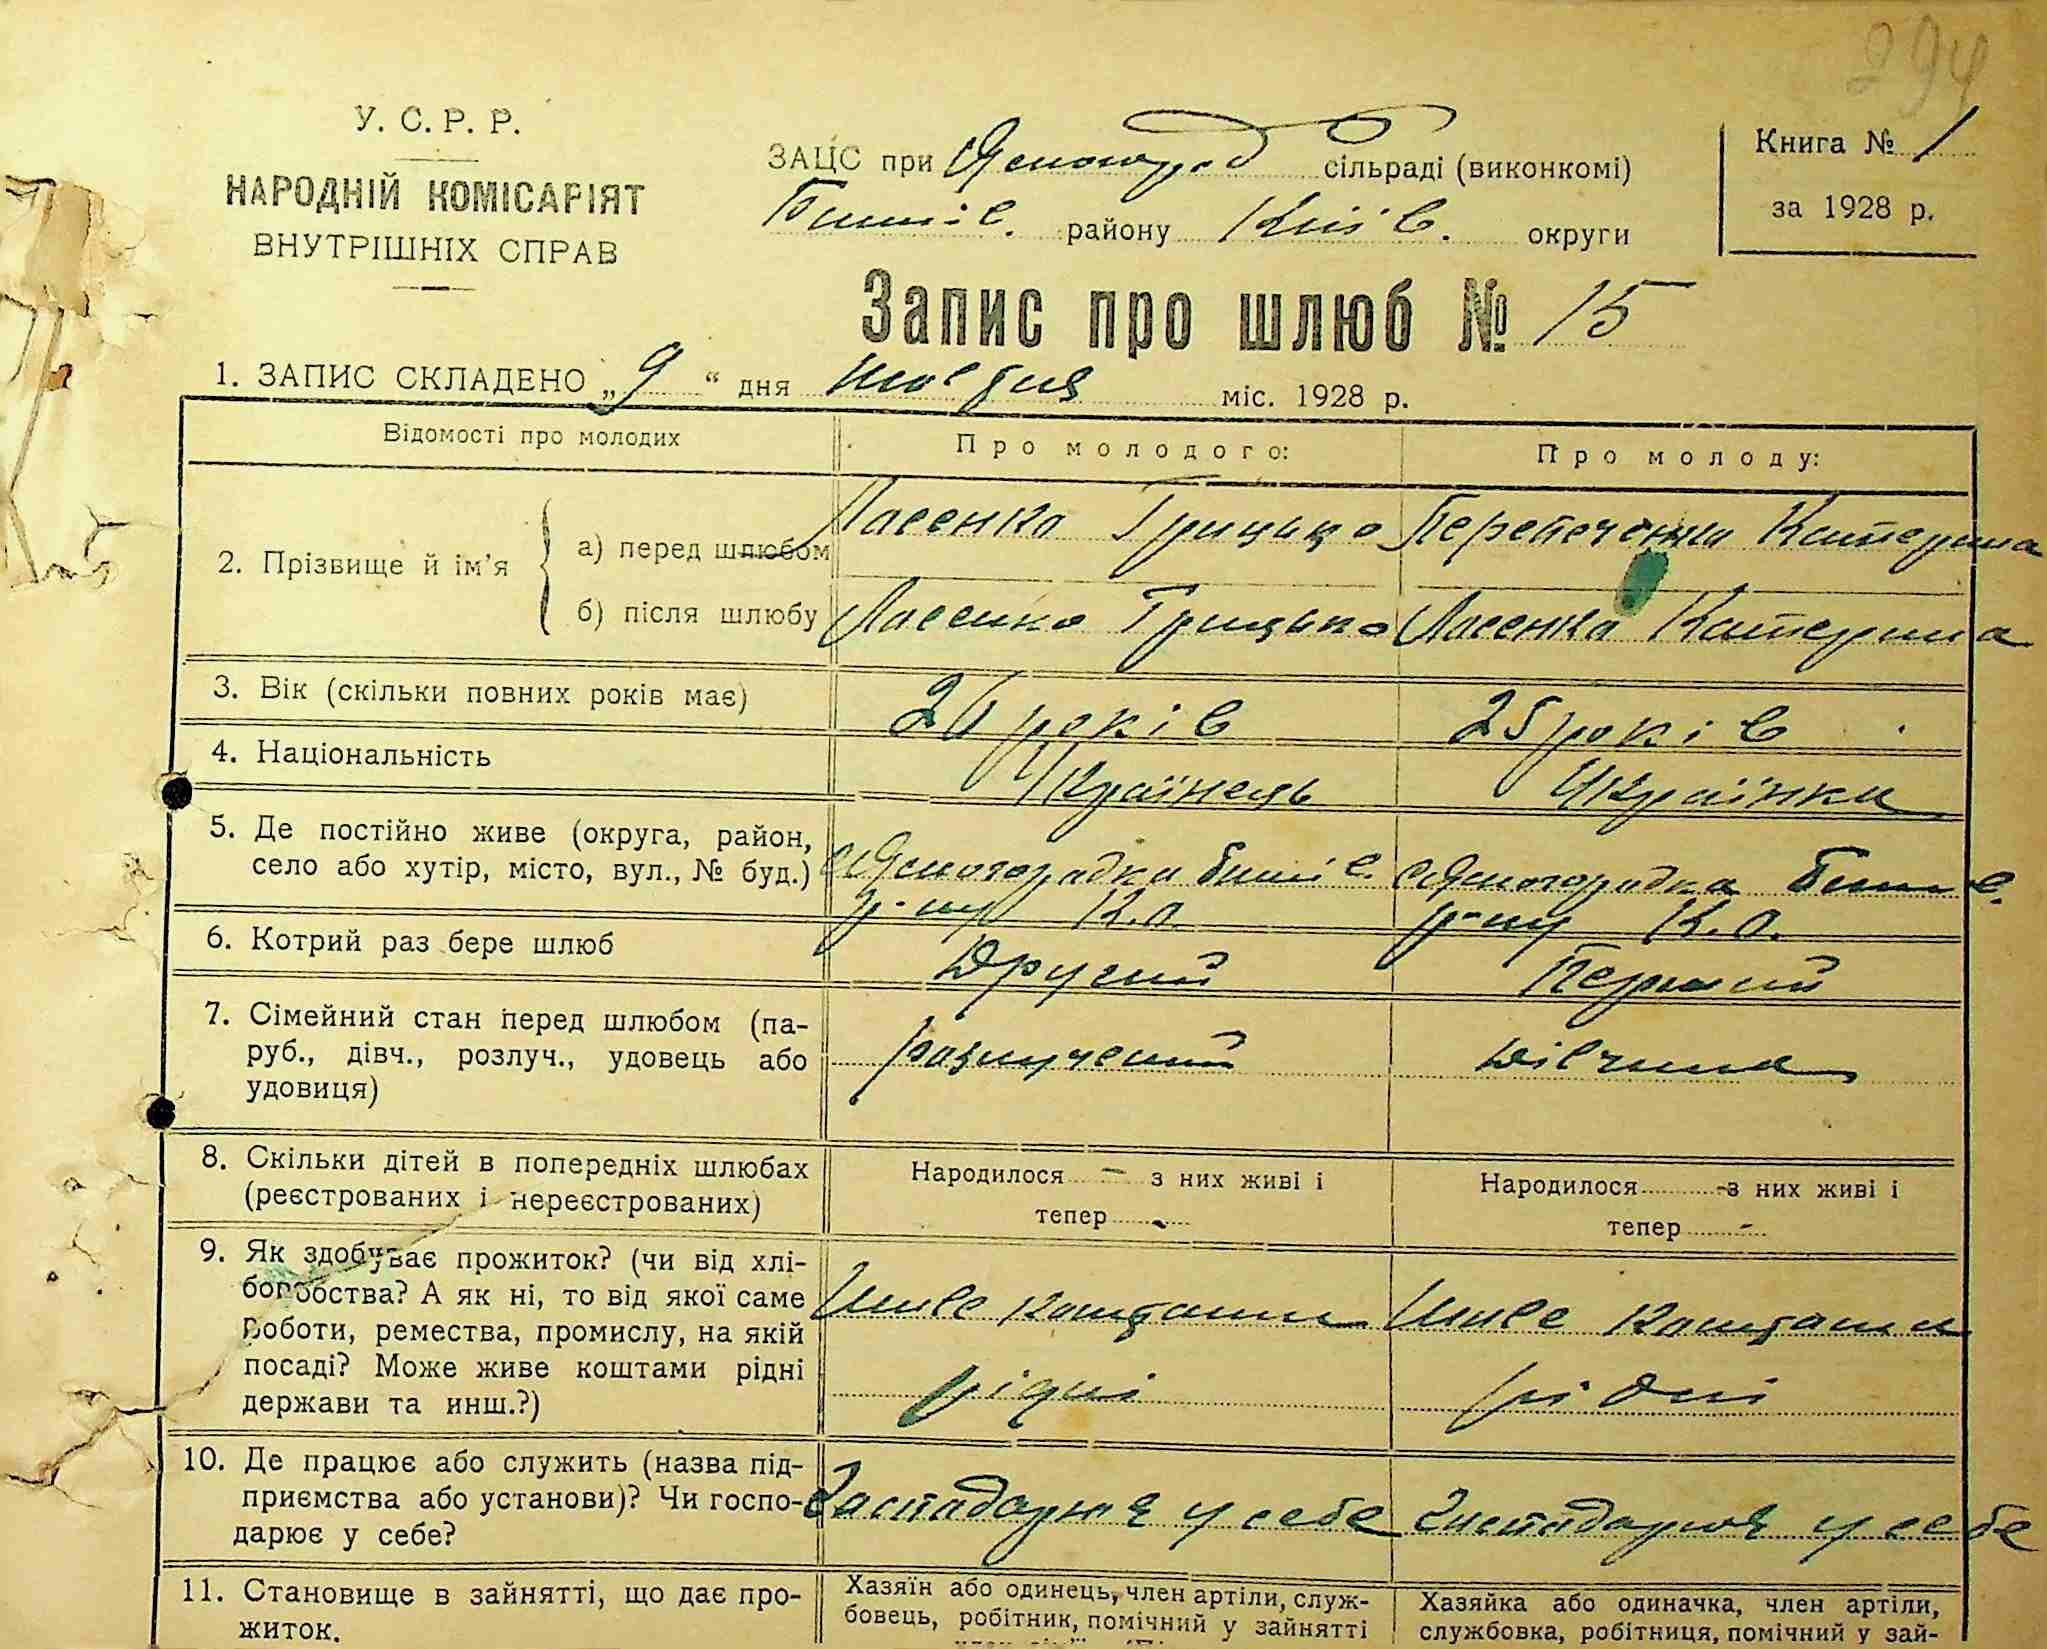 294
У. С. Р. Р.
НАРОДНІЙ КОМІСАРІЯТ
ВНУТРІШНІХ СПРАВ
ЗАЦС при Ясногород сільраді (виконкомі)
Бишів. району Київ. округи
Книга № 1
за 1928 р.
Запис про шлюб № 15
1. ЗАПИС СКЛАДЕНО „9“ дня жовтня міс. 1928 р.
Відомості про молодих
Про молодого:
Про молоду:
2. Прізвище й ім'я
а) перед шлюбом
Ласенко Грицько
Катерина
б) після шлюбу
Ласенко Грицько
Ласенко Катерина
3. Вік (скільки повних років має)
26 років
25 років
4. Національність
Українець
Українка
5. Де постійно живе (округа, район,
село або хутір, місто, вул., № буд.)
с Ясногородка бишів.
р-ну К.О.
с Ясногородка Бишів.
р-ну К.О.
6. Котрий раз бере шлюб
Другий
Перший
7. Сімейний стан перед шлюбом (па-
руб., дівч., розлуч., удовець або
удовиця)
розлучений
дівчина
8. Скільки дітей в попередніх шлюбах
(реєстрованих і нереєстрованих)
Народилося — з них живі і
тепер -
Народилося - з них живі і
тепер -
9. Як здобуває прожиток? (чи від хлі-
боробства? А як ні, то від якої саме
роботи, ремества, промислу, на якій
посаді? Може живе коштами рідні
держави та инш.?)
живе коштами
рідні
живе коштами
рідні
10. Де працює або служить (назва під-
приємства або установи)? Чи госпо-
дарює у себе?
Господарює у себе
Господарює у себе
11. Становище в зайнятті, що дає про-
житок.
Хазяїн або одинець, член артіли, служ-
бовець, робітник, помічний у зайнятті
Хазяйка або одиначка, член артіли,
службовка, робітниця, помічний у зай-